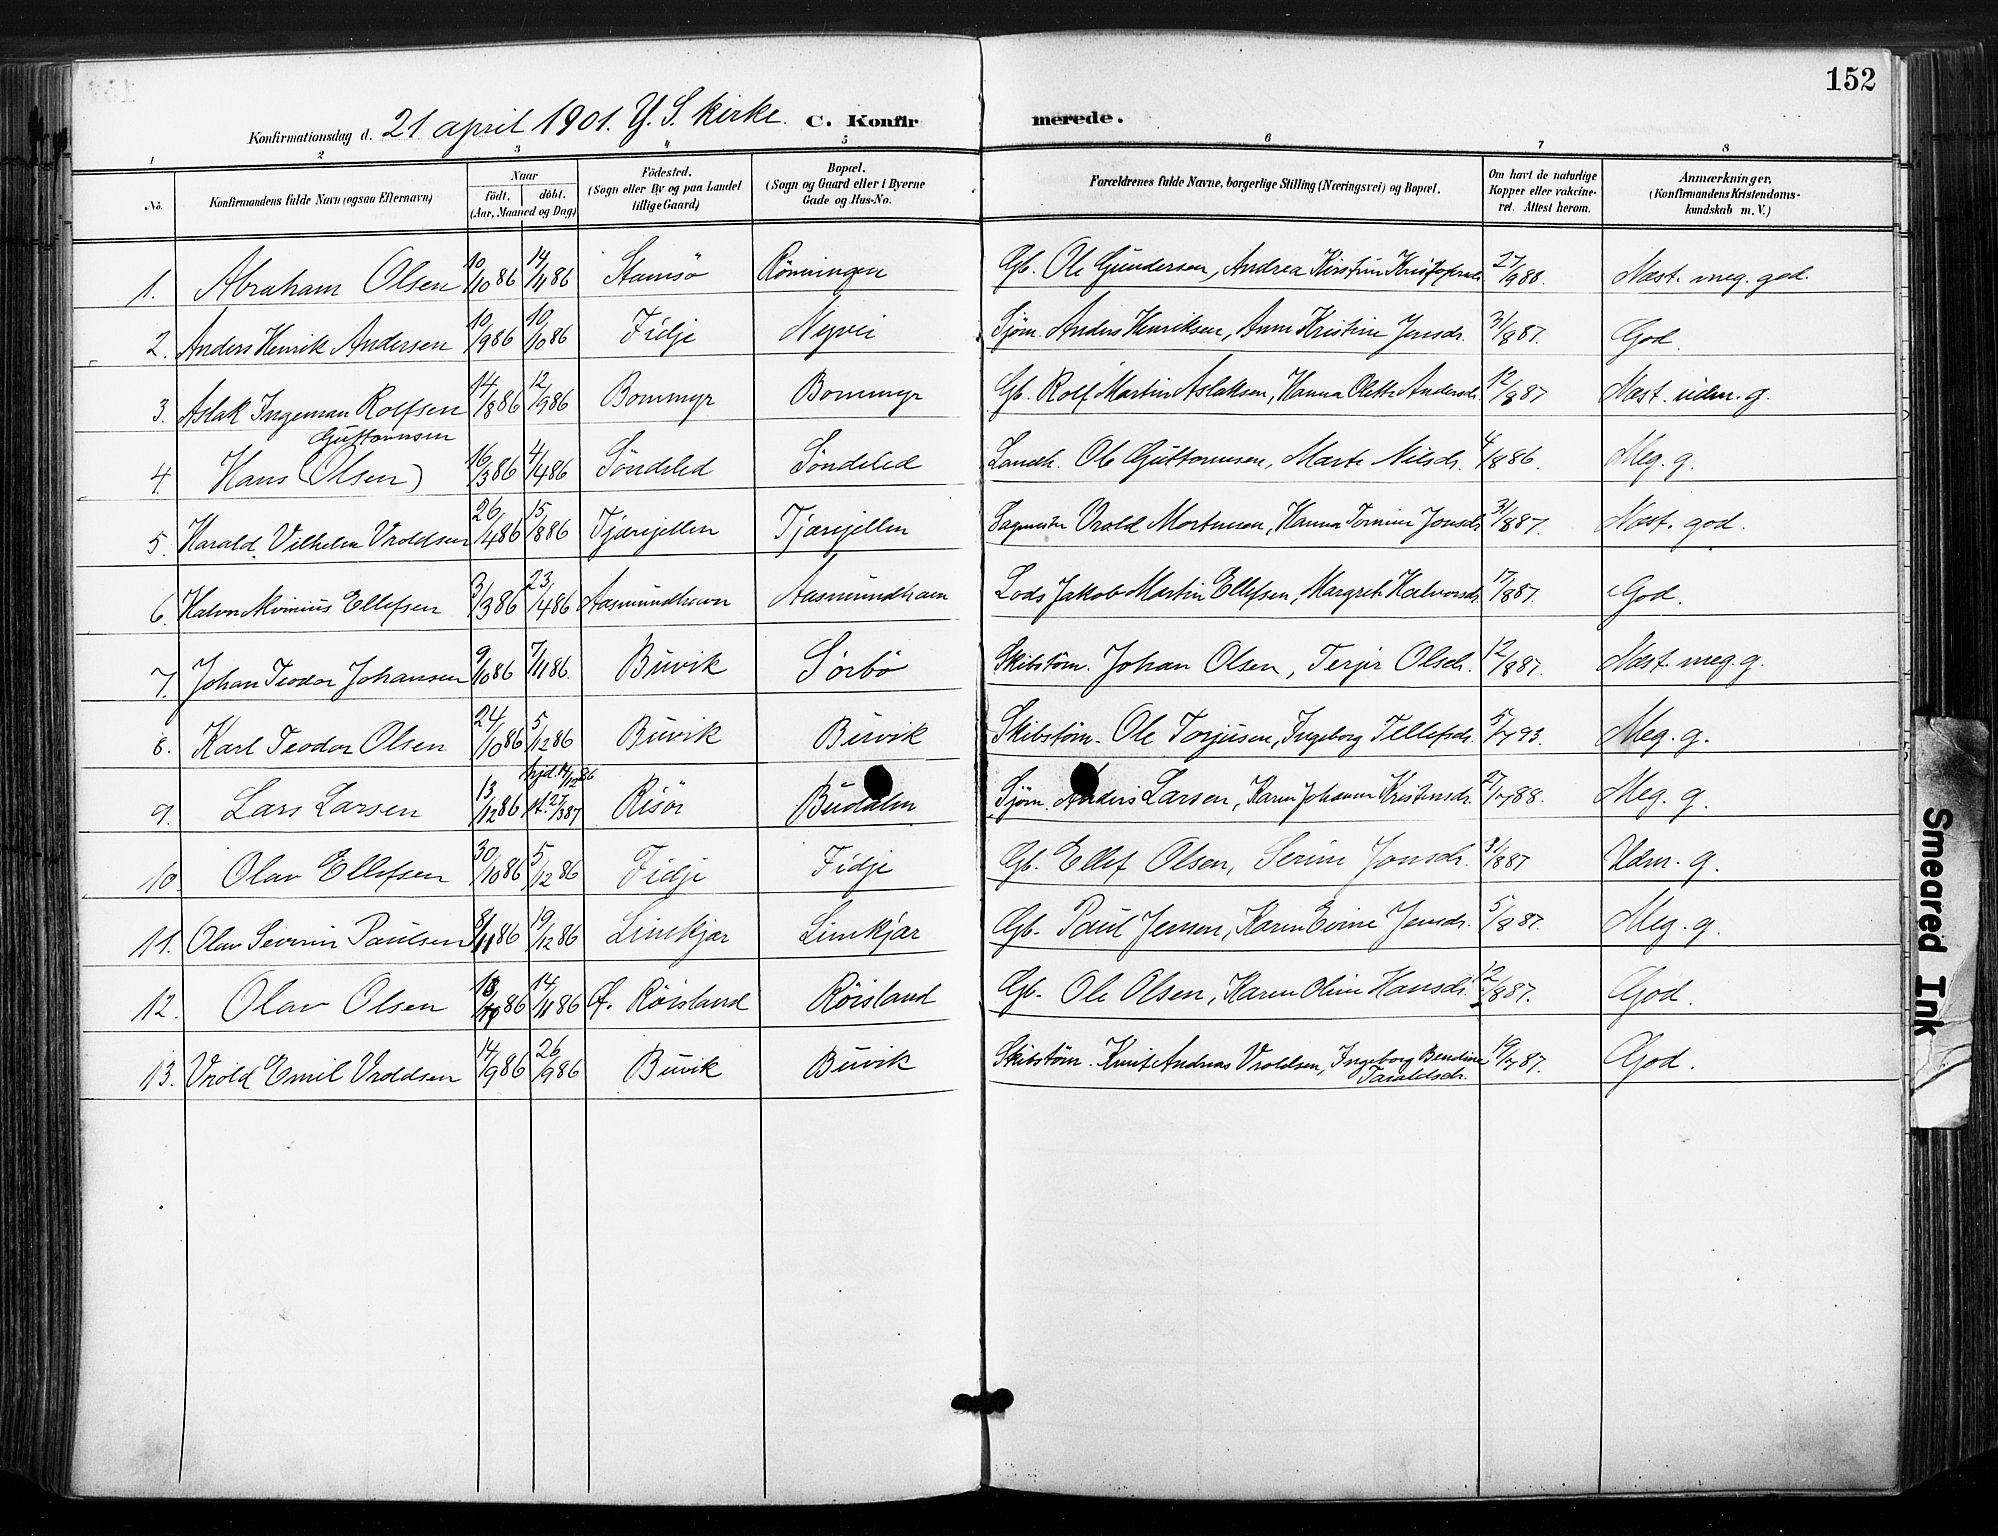 152
Konfirmationsdag d. 21 april 1901. Y. S. kirke. C. Konfirmerede.
1 2 3 4 5 6 7 8
No. Konfirmandens fulde Navn (ogsaa Efternavn) Naar födt. döbt. (Aar, Maaned og Dag) Födested. (Sogn eller By og paa Landet tillige Gaard) Bopæl. (Sogn og Gaard eller i Byerne Gade og Hus-No. Forældrenes fulde Navne, borgerlige Stilling (Næringsvei) og Bopæl. Om havt de naturlige Kopper eller vakcineret. Attest herom. Anmærkninger, (Konfirmandens Kristendomskundskab m. V.)
1. Abraham Olsen 10/10 86 14/11 86 Stamsö Rönningen Gb. Ole Gundersen, Andrea Kirstine Kristofersdr. 27/9 88. Næst. meg. god.
2. Anders Henrik Andersen 10/9 86 10/10 86 Fidje Nyvei Sjöm. Anders Henriksen, Anne Kristine Jensdr. 31/8 87. God.
3. Aslak Ingeman Rolfsen 14/8 86 12/9 86 Bommyr Bommyr Gb. Rolf Martin Aslaksen, Hanna Olette Andersdr. 12/8 87 Næst. udm. g.
Guttormsen
4. Hans (Olsen) 16/3 86 4/4 86 Söndeled Söndeled Landh. Ole Guttormsen, Marte Nilsdr. 4/8 86. Meg. g.
5. Harald Vilhelm Vroldsen 26/4 86 15/8 86 Tjærejellen Tjærejellen Sagmester Vrold Mortensen, Hanna Tomine Jonsdr. 31/8 87. Næst. god.
6. Halvor Ellefsen 3/3 86 23/4 86 Aasmundhavn Aasmundhavn Lods Jakob Martin Ellefsen, Margrete Halvorsdr. 17/8 87. God.
7. Johan Teodor Johansen 9/10 86 7/11 86. Buvik Sörbö Skibstöm. Johan Olsen, Terjer Olsdr. 12/8 87. Næst. meg. g.
8. Karl Teodor Olsen 24/10 86 5/12 86 Buvik Buvik Skibstöm. Ole Torjusen, Ingeborg Tellefsdr. 5/7 93. Meg. g.
hjd. 14/12 86
9. Lars Larsen 13/12 86 st. 27/3 87 Risör Buddalen Sjöm. Anders Larsen, Karen Johanne Kristensdr. 27/7 88. Meg. g.
10. Olav Ellefsen 30/10 86 5/12 86 Fidje Fidje Gb. Ellef Olsen, Serine Jonsdr. 31/8 87 Udm. g.
11. Olav Severin Paulsen 8/11 86 19/12 86 Limkjær Limkjær Gb. Paul Jensen, Karen Evine Jensdr. 5/8 87. Meg. g.
12. Olav Olsen 18/10 86 14/11 86 Ö. Röisland Röisland Gb. Ole Olsen, Karen Oline Hansdr. 12/8 87. God.
13. Vrold Emil Vroldsen 14/9 86 26/9 86 Buvik Buvik Skibstöm. Knut Andreas Vroldsen, Ingeborg Bendine 19/7 87. God.
Taraldsdr.
Smeared Ink